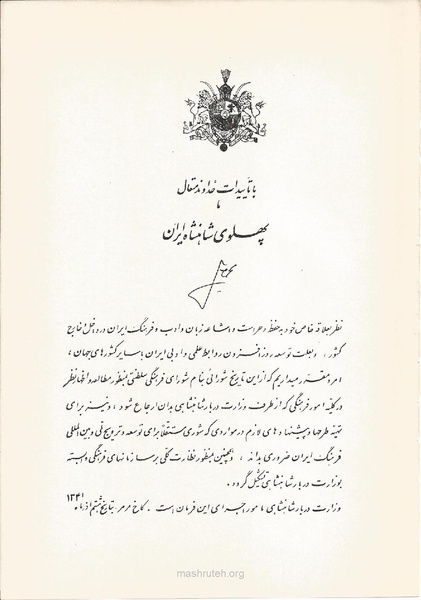 با تأییدات خداوند متعال
ما
پهلوی شاهنشاه ایران
نظر بعلاقه خاص خود به حفظ و حراست و اشاعه زبان و ادب و فرهنگ ایران در داخل و خارج
کشور ، و بعلت توسعه روز افزون روابط علمی و ادبی ایران با سایر کشورهای جهان ،
امر و مقرر میداریم که از این تاریخ شورائی بنام شورای فرهنگی سلطنتی بمنظور مطالعه و اظهار نظر
در کلیه امور فرهنگی که از طرف وزارت دربار شاهنشاهی بدان ارجاع شود ، و نیز برای
تهیه طرحها و پیشنهادهای لازم در مواردی که شوری مستقلاً برای توسعه و ترویج فنی و بین المللی
فرهنگ ایران ضروری بداند ، و همچنین بمنظور نظارت کلی بر سازمانهای فرهنگی وابسته
بوزارت دربار شاهنشاهی تشکیل گردد .
وزارت دربار شاهنشاهی مأمور اجرای این فرمان است . کاخ مرمر بتاریخ آذرماه ۱۳۴۱
mashruteh.org